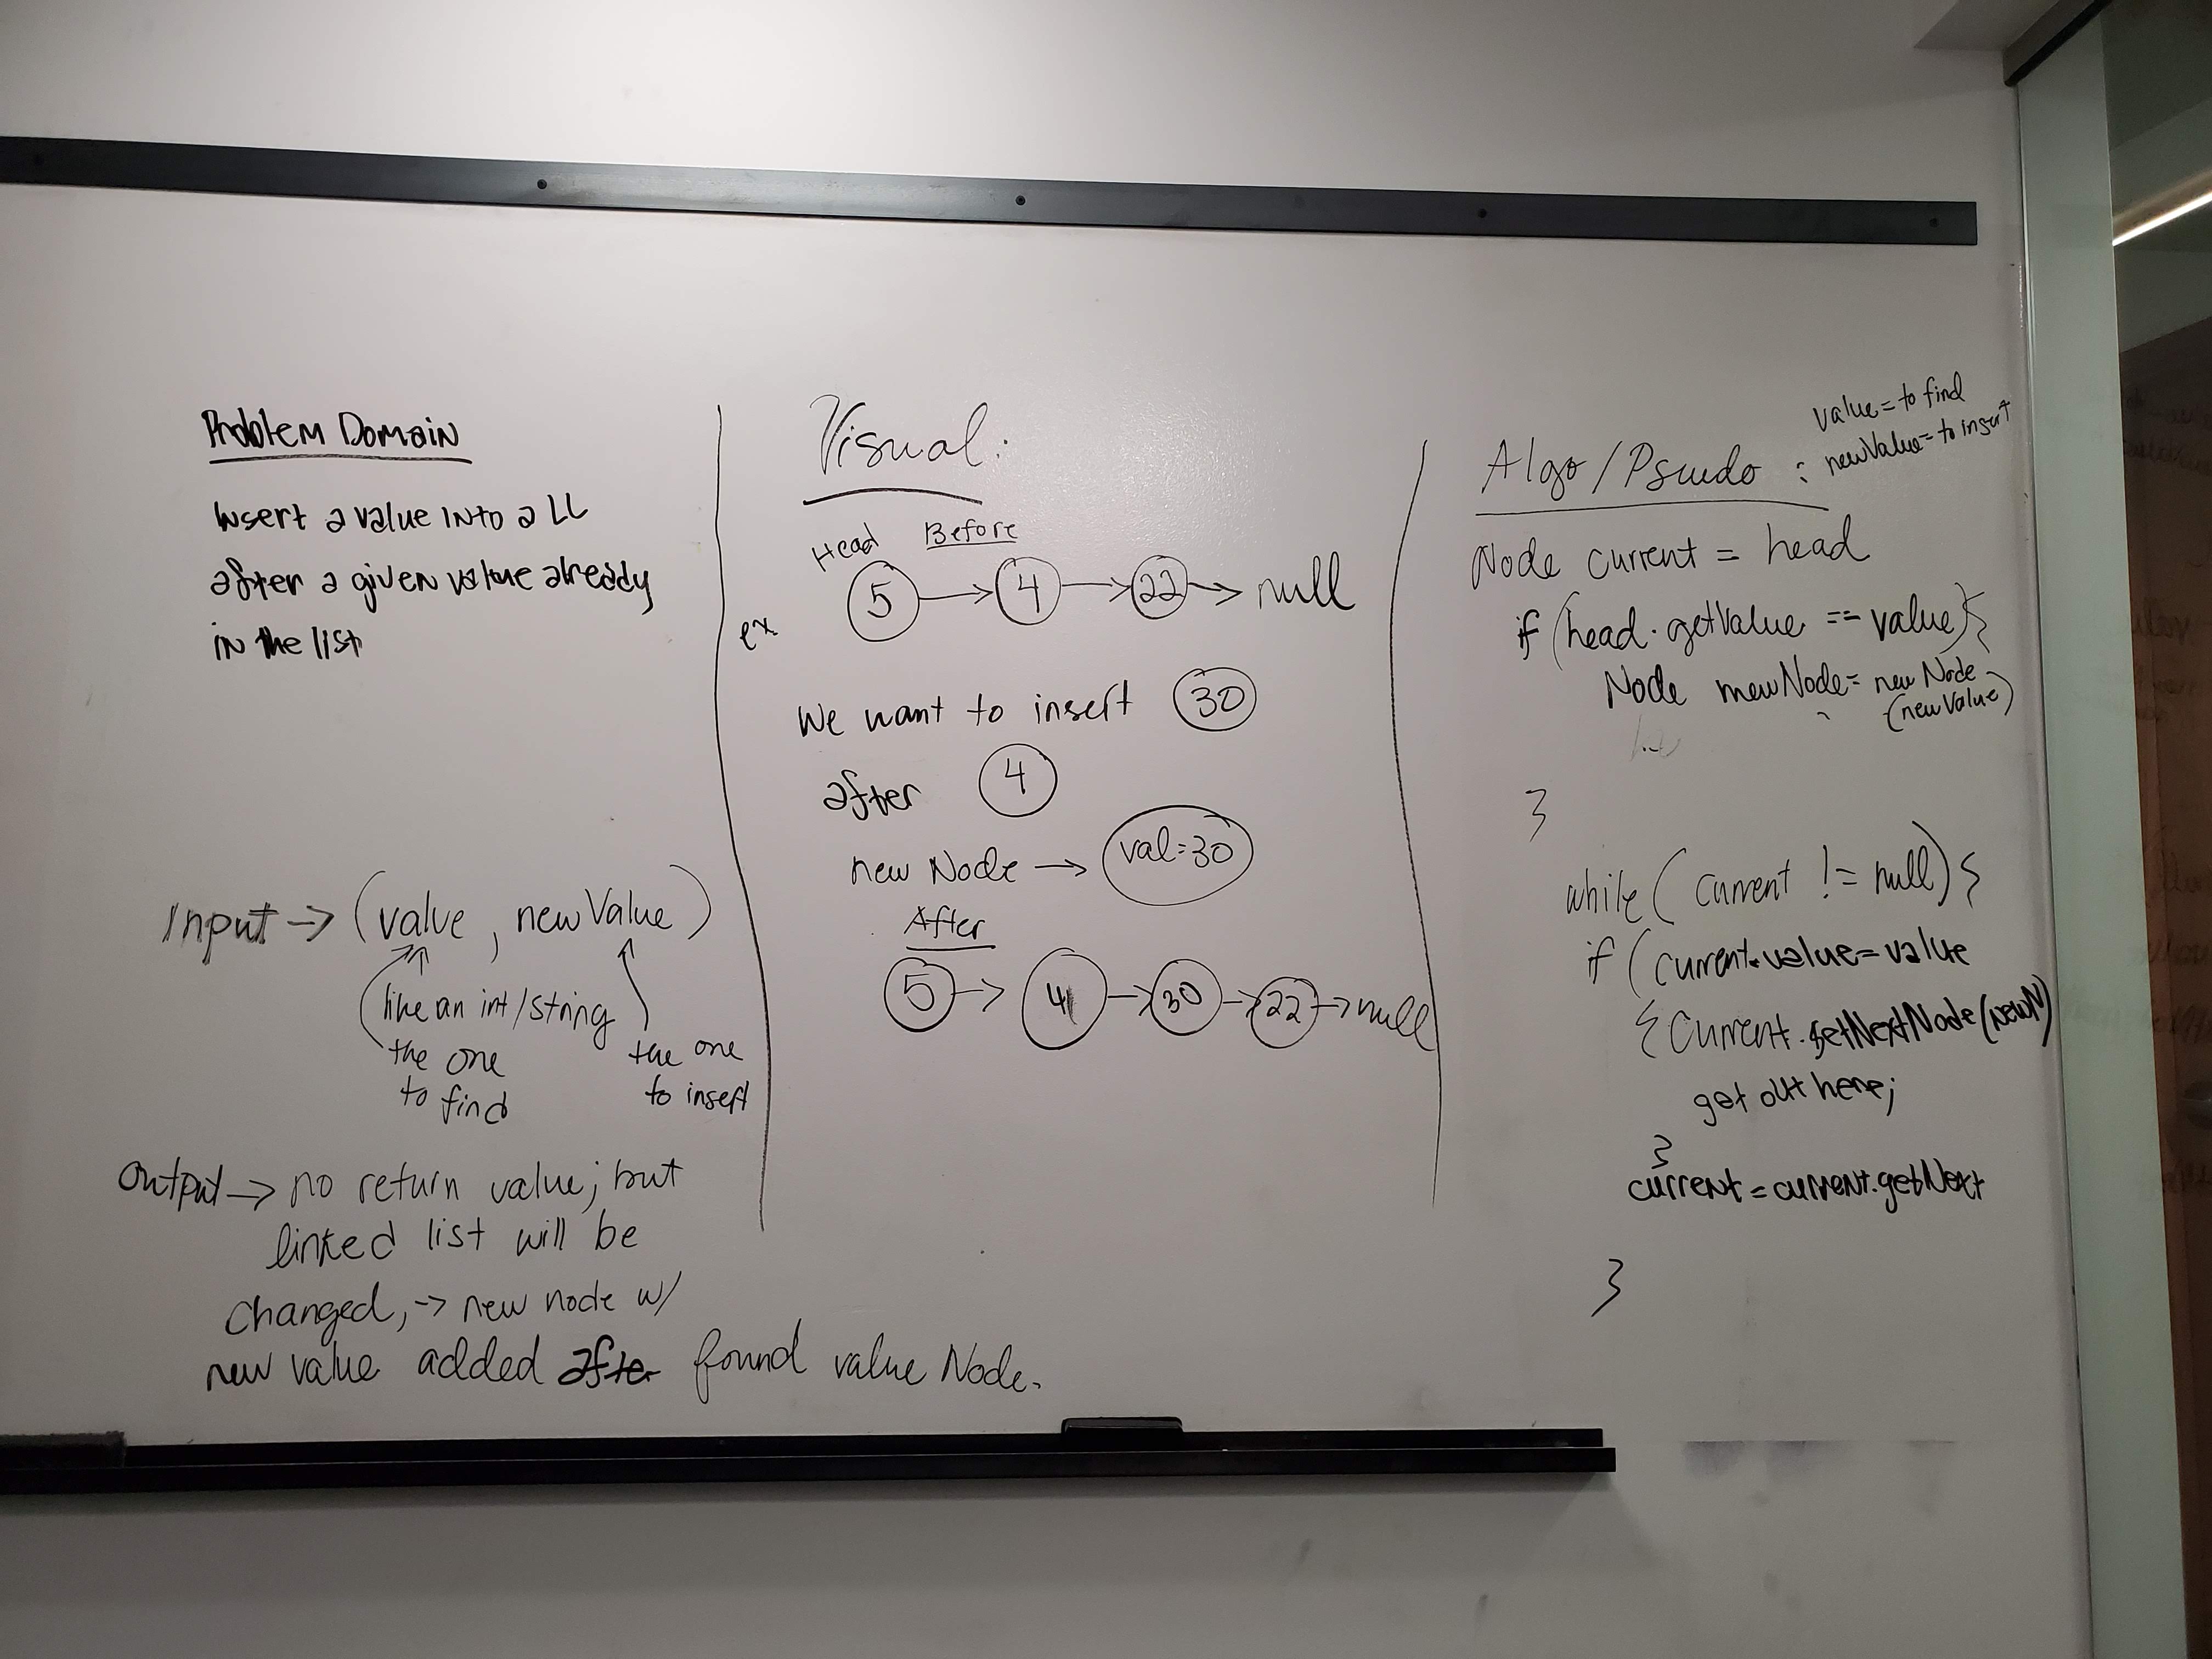 Problem Domain
Insert a value into a LL
after a given value already
in the list
Input -> (value, newValue)
like an int/string
the one
to find
the one
to insert
Output -> no return value; but
linked list will be
changed, -> new node w/
new value added after found value Node.
Visual:
Head Before
5 -> 4 -> 22 -> null
ex
We want to insert 30
after 4
new Node -> val=30
After
5 -> 4 -> 30 -> 22 -> null
value = to find
newValue = to insert
Algo/Psuedo :
Node current = head
if (head.getValue == value) {
Node newNode = new Node
(newValue)
}
while (current != null) {
if (current.value = value
{ Current.setNextNode(newN)
get out here;
}
current = current.getNext
}